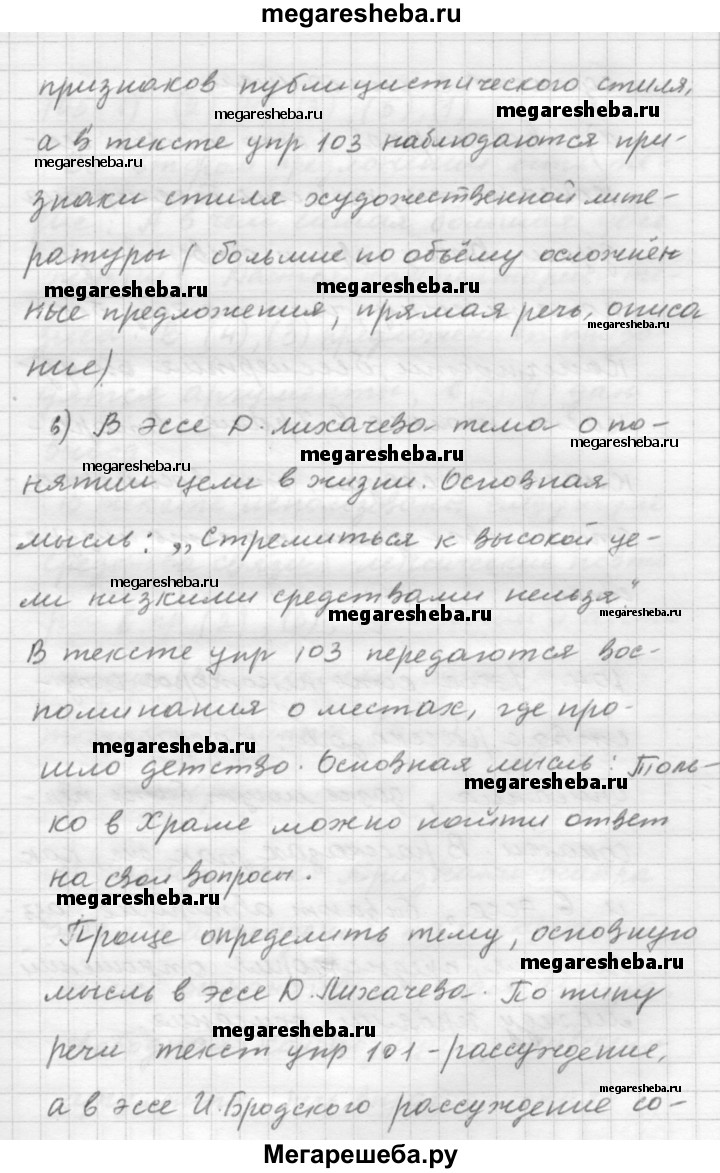 megaresheba.ru
признаков публицистического стиля,
megaresheba.ru
megaresheba.ru
а в тексте упр 103 наблюдаются при-
megaresheba.ru
знаки стиля художественной лите-
ратуры ( большие по объёму осложнён
megaresheba.ru
megaresheba.ru
ные предложения, прямая речь, описа
megaresheba.ru
ние)
в) В эссе Д. Лихачева тема о по-
megaresheba.ru
megaresheba.ru
megaresheba.ru
нятии цели в жизни. Основная
мысль: „Стремиться к высокой це-
megaresheba.ru
ли низкими средствами нельзя“.
megaresheba.ru
В тексте упр 103 передаются вос-
поминания о местах, где про-
megaresheba.ru
шло детство. Основная мысль: Толь-
megaresheba.ru
ко в Храме можно найти ответ
на свои вопросы.
megaresheba.ru
Проще определить тему, основную
megaresheba.ru
мысль в эссе Д. Лихачева. По типу
megaresheba.ru
речи текст упр 101 - рассуждение,
megaresheba.ru
а в эссе И. Бродского рассуждение со-
Мегарешеба.ру